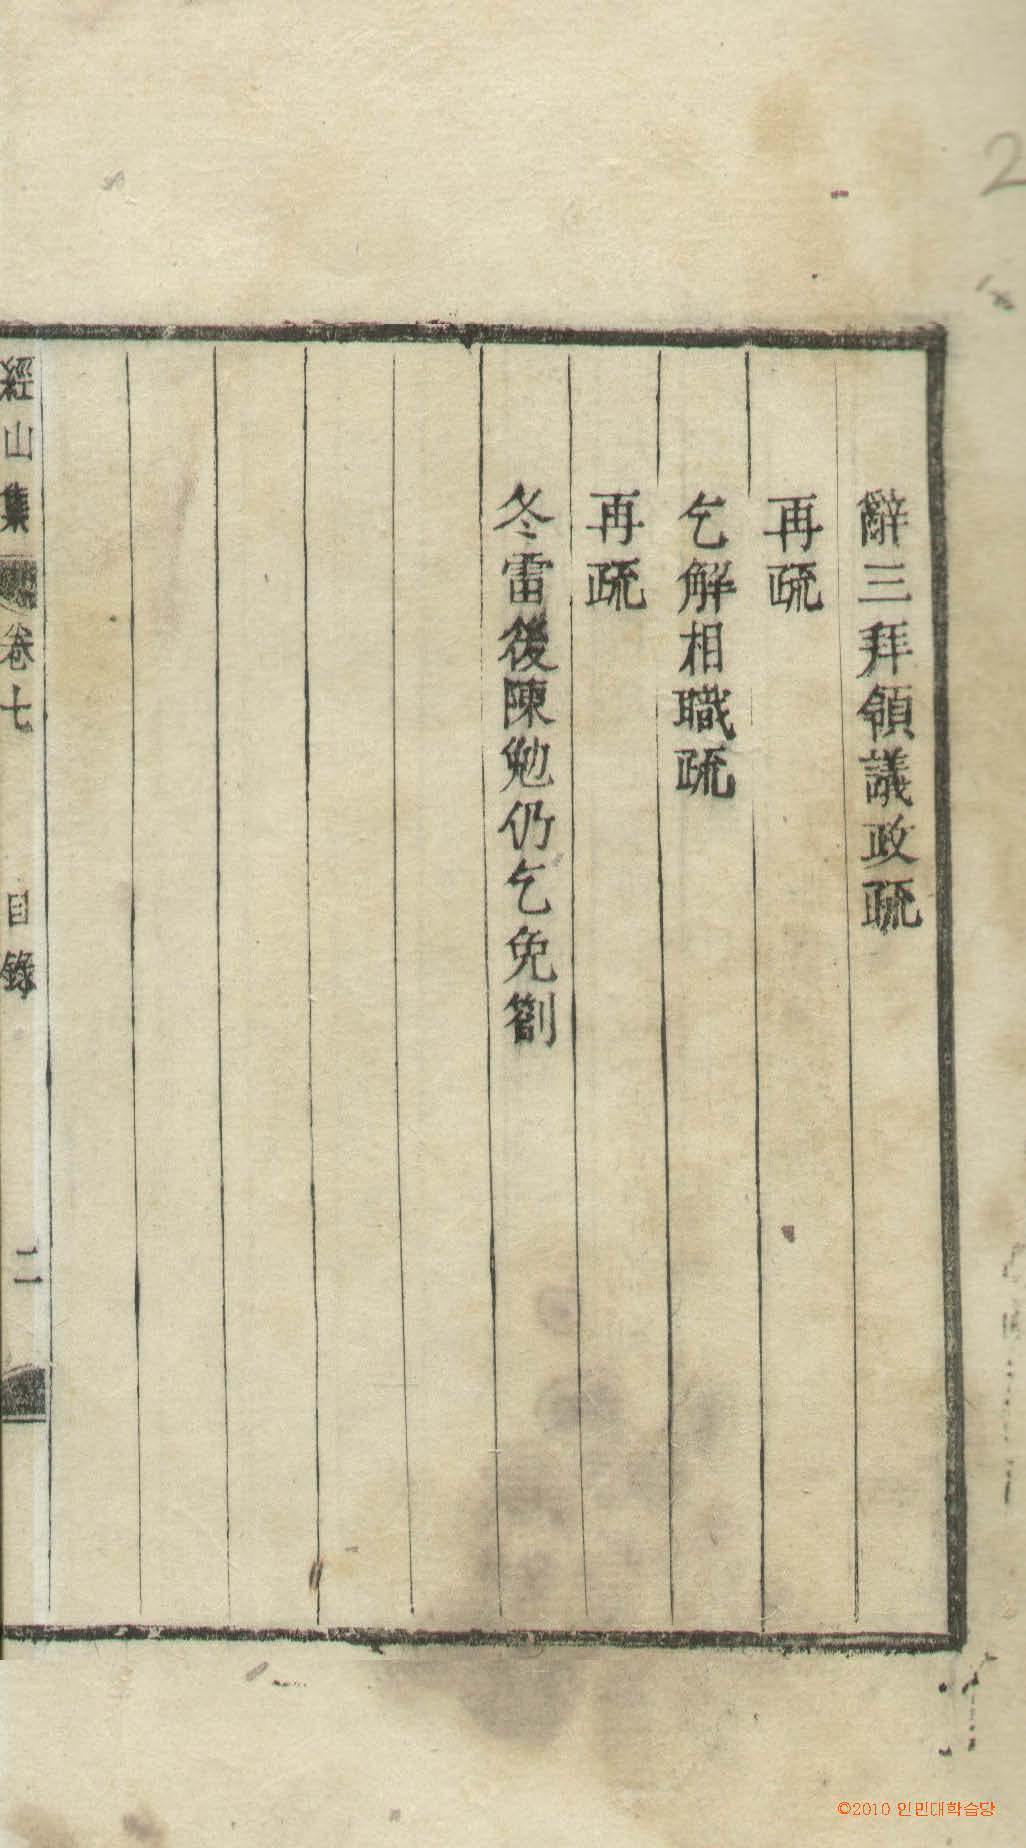 辭三拜領議政疏
再疏
乞解相職疏
再疏
冬雷後陳勉仍乞免劄
經山集 卷七 目錄 二
2
©2010 인민대학습당